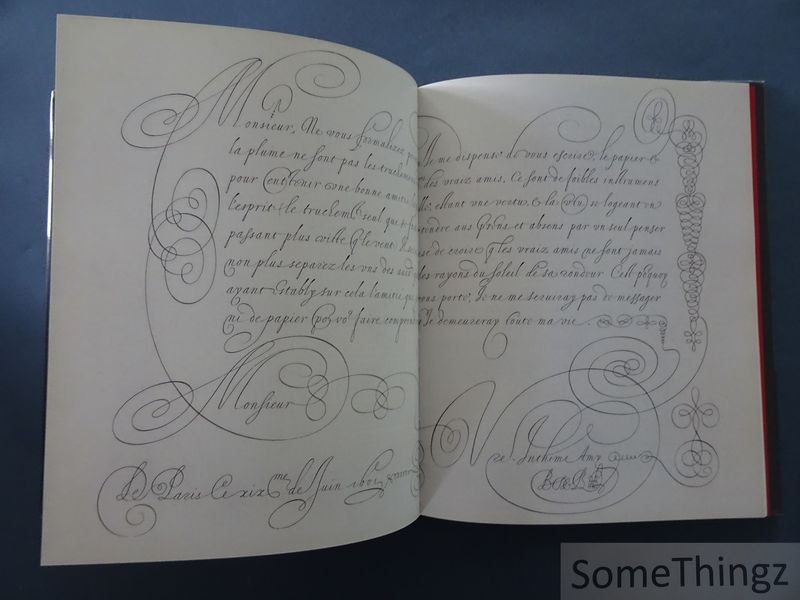 Monsieur, Ne vous formalizez Je me dispense de vous escrire, le papier &
la plume ne sont pas les truchemens des vraiz amis. Ce sont de foibles instrumens
pour entretenir une bonne amitié estant une vertu, & la se logeant en
l'esprit, le truchemẽt seul que aux et absens par un seul penser
passant plus viste q̃ le vent. de croire q̃ les vraiz amis ne sont jamais
non plus separez les uns des les rayons du soleil de sa rondeur C'est
ayant estably sur cela l'amitié que vous porte, Je ne me serviray pas de messager
ni de papier vo9 faire Je demeureray toute ma vie
Monsieur
Vre Inthime Amy
De Paris Ce xix me de Juin
SomeThingz